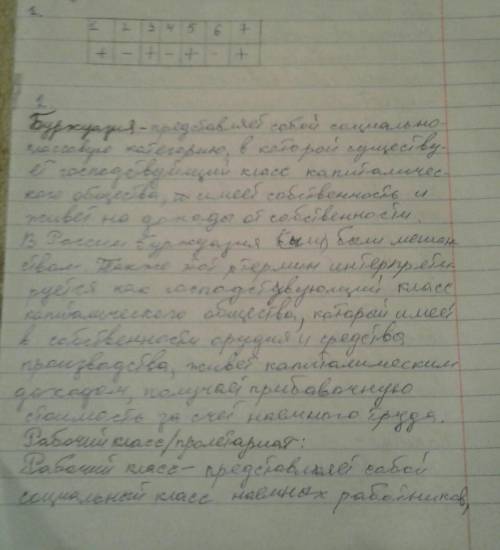 1.
1 2 3 4 5 6 7
+ - + - + - +
2.
Буржуазия - представляет собой социально-
классовую категорию, в которой существу-
ет господствующий класс капиталичес-
кого общества, имеет собственность и
живет на доходы от собственности.
В России буржуазия были мещан
ством. Также этот термин интерпрети
руется как господствующий класс
капиталического общества, который имеет
в собственности орудия и средства
производства, живёт капиталическим
доходом, получает прибавочную
стоимость за счет наемного труда.
Рабочий класс/пролетариат:
Рабочий класс - представляет собой
социальный класс наемных работников,